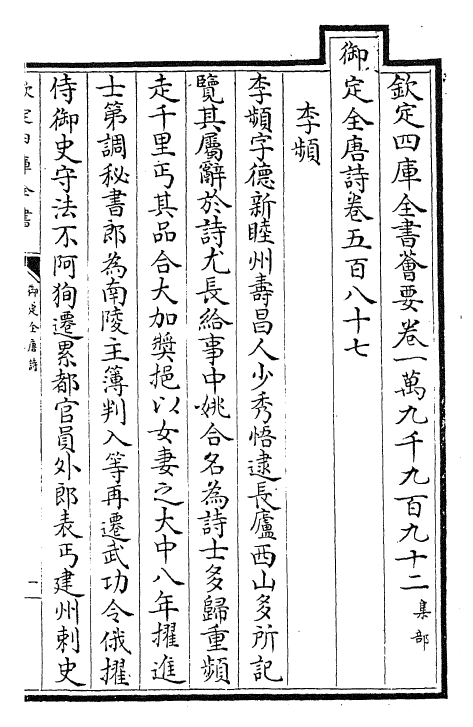 欽定四庫全書薈要卷一萬九千九百九十二 集部
御定全唐詩卷五百八十七
李頻
李頻字德新睦州壽昌人少秀悟逮長廬西山多所記
覽其屬辭於詩尤長給事中姚合名為詩士多歸重頻
走千里丐其品合大加獎挹以女妻之大中八年擢進
士第調秘書郎為南陵主簿判入等再遷武功令俄擢
侍御史守法不阿狥遷累都官員外郎表丐建州刺史
欽定四庫全書
御定全唐詩
一